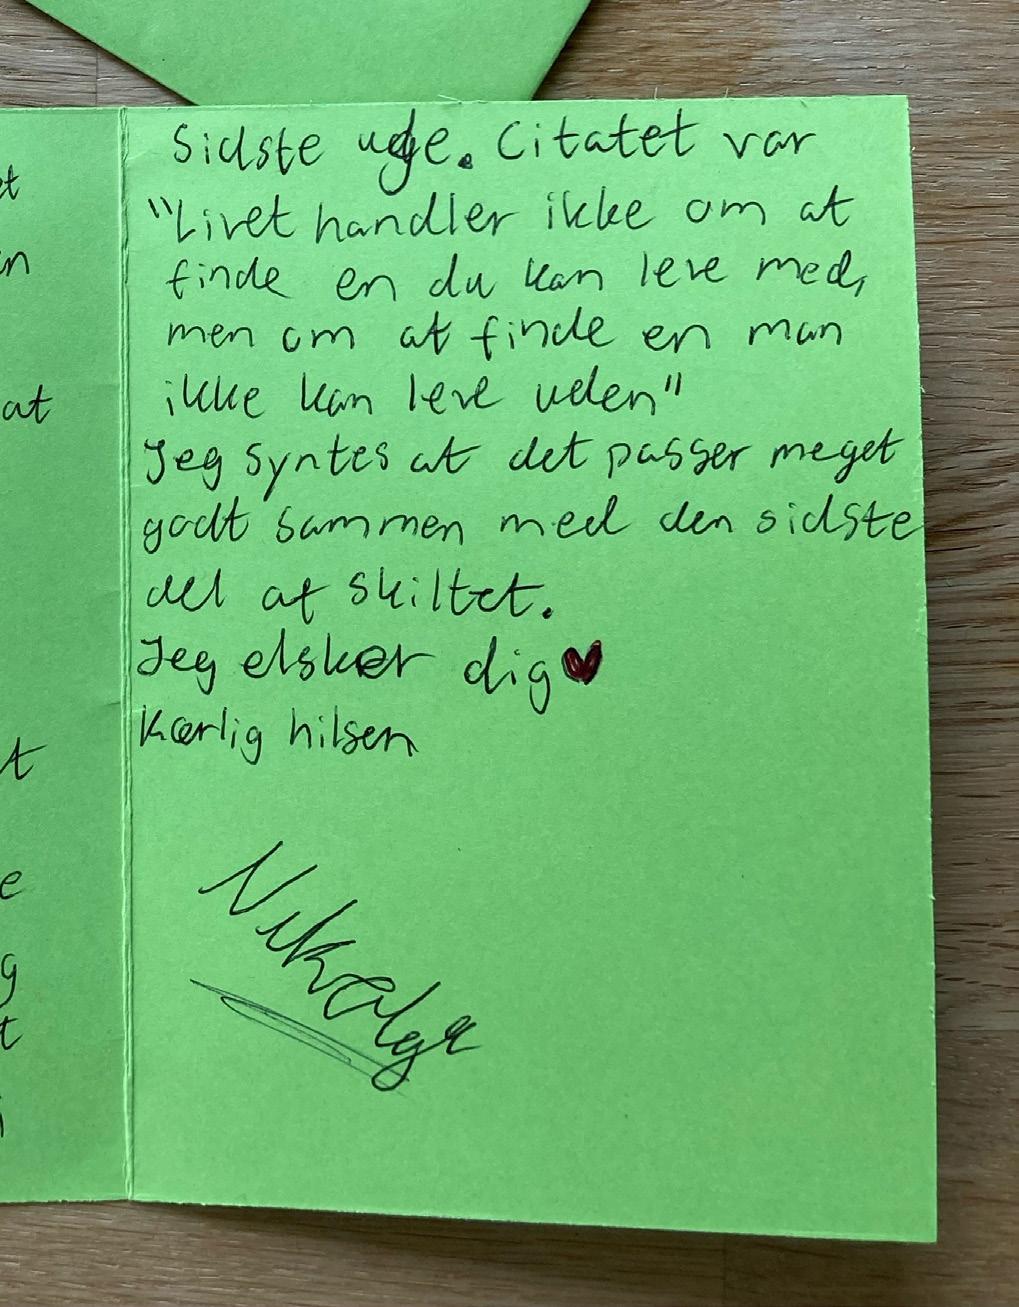 et
in
at
t
e
g
t
i
sidste uge. Citatet var
"Livet handler ikke om at
finde en du kan leve med,
men om at finde en man
ikke kan leve uden"
Jeg syntes at det passer meget
godt sammen med den sidste
del af skiltet.
Jeg elsker dig♥
Kærlig hilsen